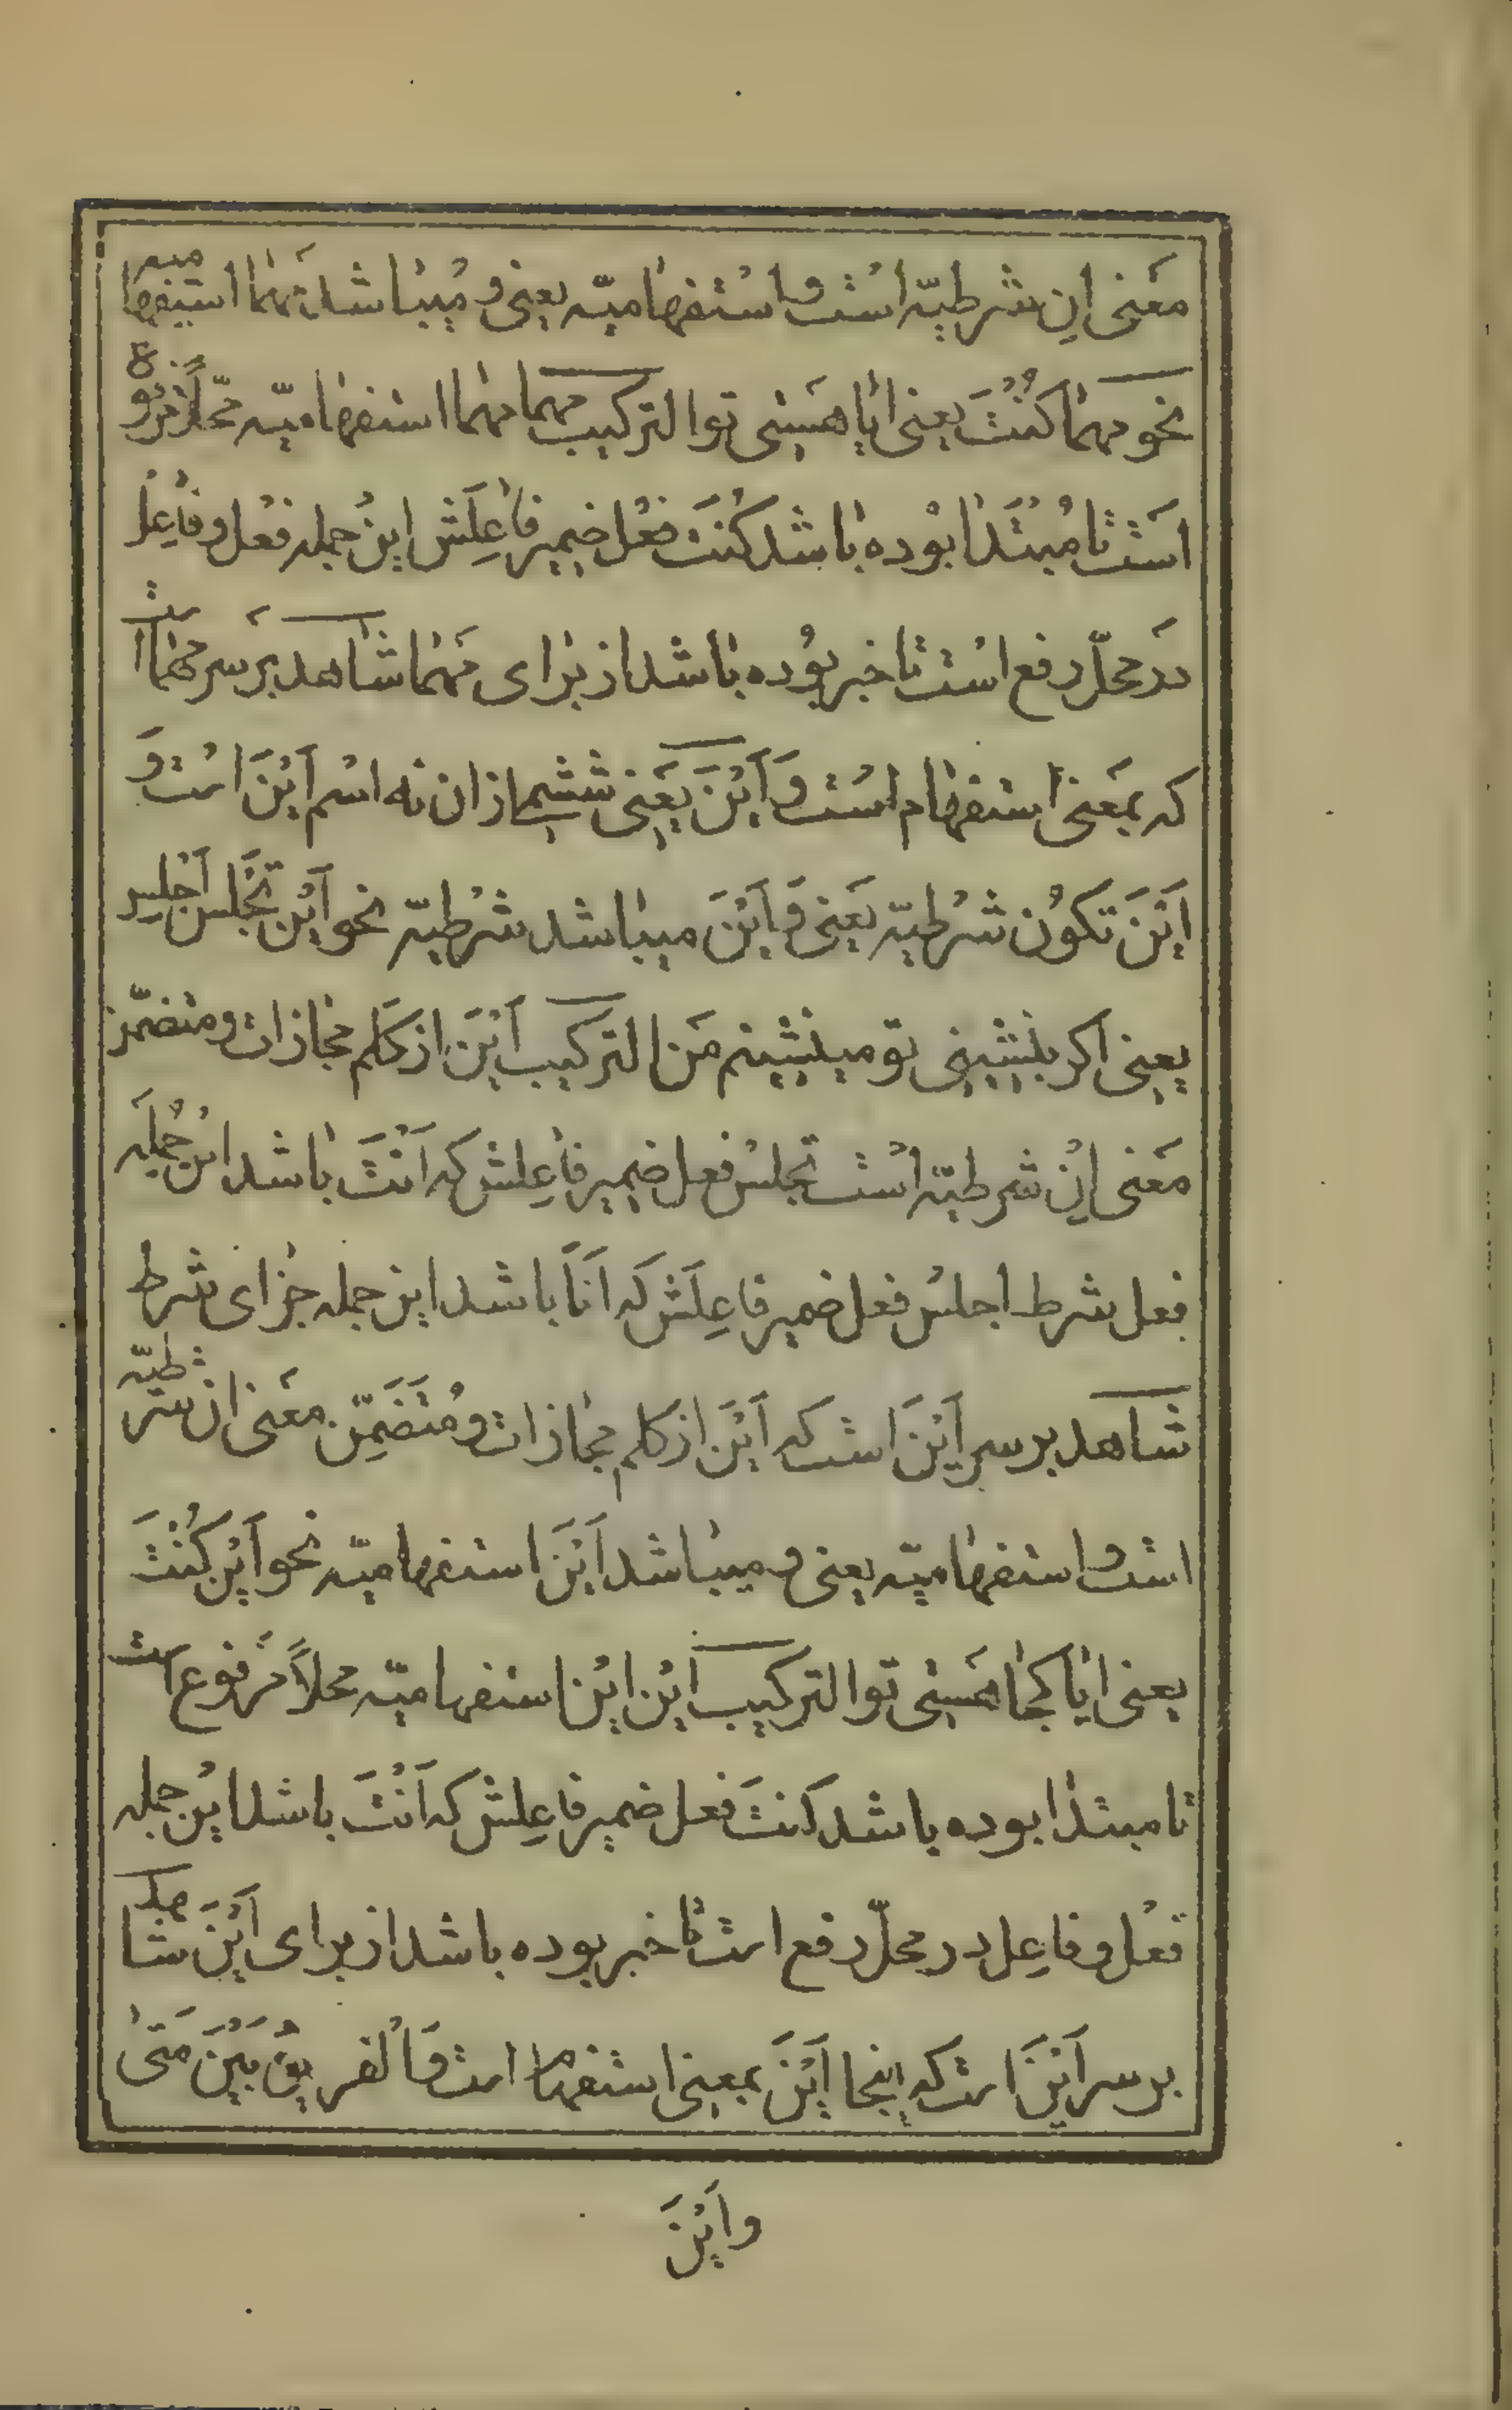 معنی اِن شرطیّه است و استفهامیّه یعنی و میباشد مهما استفهامیه
نحو مهما کُنْتَ یعنی ایا هستی تو الترکیب مهما مهما استفهامیّه محلّاً مرفوع
است تا مُبْتَدا بوده باشد کُنْتَ فعل ضمیر فاعِلَش این جمله فعل و فاعِل
در محلّ رفع است تا خبر بوده باشد از برای مهما شاهد بر سر مهما است
که بمعنی استفهام است وَ اَیْنَ یَعنی ششیم از ان نه اسم اَیْنَ است وَ
اَیْنَ تَکُون شرْطیّه یَعنی وَ اَیْنَ میباشد شرْطیّه نحو اَیْنَ تَجْلس اَجْلِس
یعنی اکر بنشینی تو مینشینم مَن الترکیب اَیْنَ از کَلم مجازات و متضمّن
مَعنی اِن شرطیّه است تجلسْ فعل ضمیر فاعِلش که اَنْتَ باشد این جُمله
فعل شرط اجلسْ فعل ضمیر فاعِلَش که اَنَا باشد این جمله جزای شرط
شاهد بر سر اَیْنَ است که اَیْنَ از کلم مجازات و مُتَضَمِّن معَنی ان شرطیّه
است و استفهامیّه یعنی و میباشد اَیْنَ استفهامیّه نحو اَیْن کُنْتَ
یعنی ایا کجا هَستی تو الترکیب اَیْن اَیْن استفهامیّه محلاً مَرفوع است
تا مبتدا بوده باشد کنتَ فعل ضمیر فاعِلش که اَنْتَ باشد این جمله
فعْل و فاعِل در محلّ رفع است تا خبر بوده باشد از برای اَیْنَ شاهد
بر سر اَیْنَ است که اینجا اَیْنَ بمعنی استفهام است وَ الْفریقُ بَیْنَ مَتیٰ
و اَیْنَ